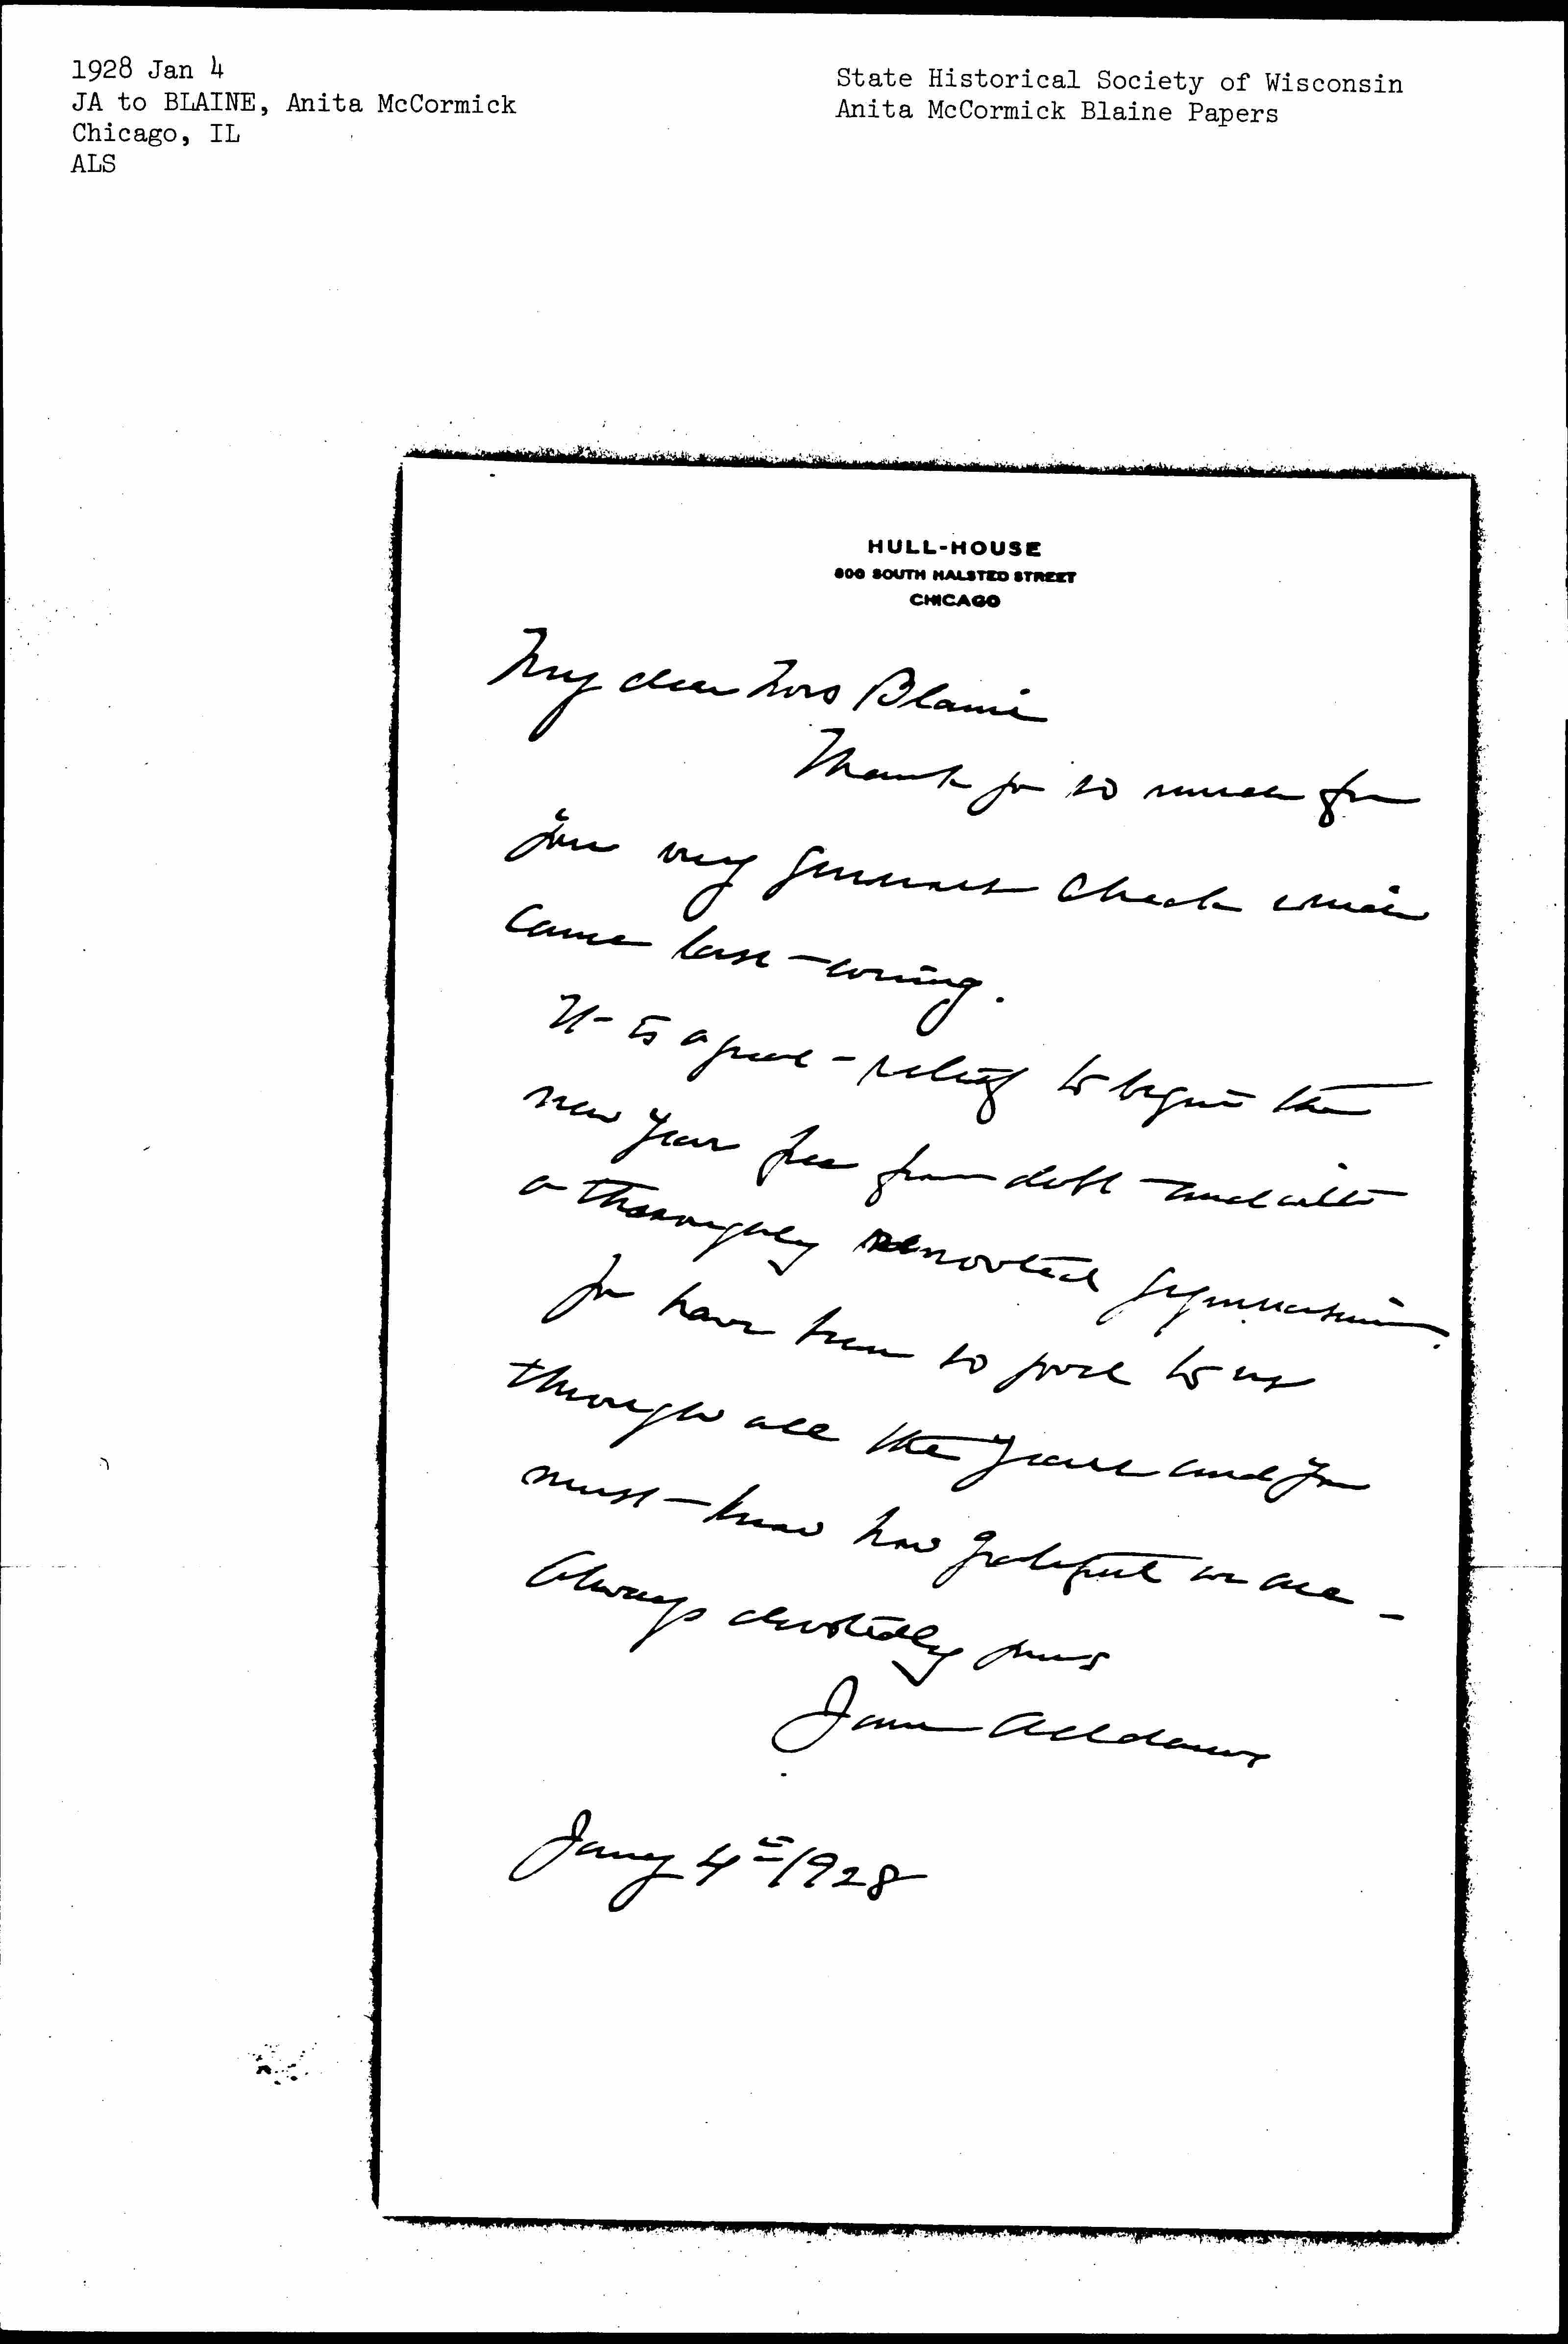 1928 Jan 4
JA to BLAINE, Anita McCormick
Chicago, IL
ALS
State Historical Society of Wisconsin
Anita McCormick Blaine Papers
HULL-HOUSE
800 SOUTH HALSTED STREET
CHICAGO
My dear Mrs Blaine
Thank you so much for
your very generous check which
came last evening.
It is a great relief to begin the
new year free from debt and with
a thoroughly renovated gymnasium.
You have been so good to us
through all the years and you
must know how grateful we are -
Always devotedly yours
Jane Addams
Jany 4th 1928